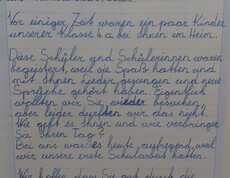 Vor einiger Zeit waren ein paar Kinder
unserer Klasse 4a bei Ihnen im Heim.
Diese Schüler und Schülerinnen waren
begeistert, weil sie Spaß hatten und
mit Ihnen Lieder gesungen und neue
Sprüche gehört haben. Eigentlich
wollten wir Sie wieder besuchen,
aber leider dürfen wir das nicht.
Wie geht es Ihnen und wie verbringen
Sie Ihren Tag?
Bei uns war es heute aufregend, weil
wir unsere erste Schularbeit hatten.
Wir hoffen, dass Sie gut durch die